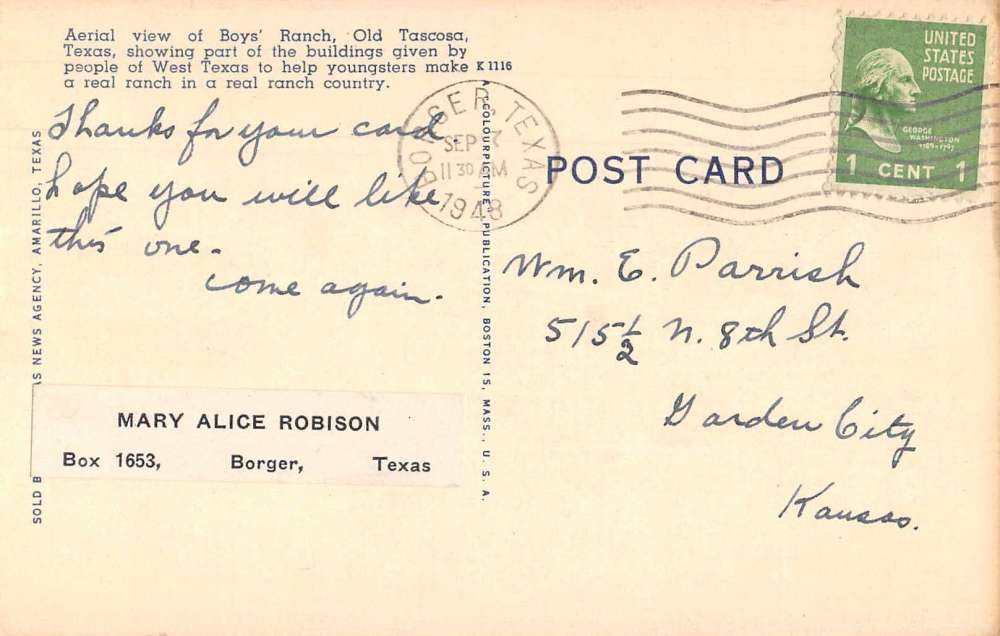 Aerial view of Boys' Ranch, Old Tascosa,
Texas, showing part of the buildings given by
people of West Texas to help youngsters make
a real ranch in a real ranch country.
K 1116
Thanks for your card
hope you will like
this one.
come again.
MARY ALICE ROBISON
Box 1653, Borger, Texas
SOLD B
AS NEWS AGENCY, AMARILLO, TEXAS
A COLOURPICTURE PUBLICATION, BOSTON 15, MASS., U. S. A.
BORGER, TEXAS
SEP 3
11 30 AM
1948
POST CARD
UNITED
STATES
POSTAGE
GEORGE
WASHINGTON
1789-1797
1 CENT 1
Wm. E. Parrish
515½ N. 8th St.
Garden City
Kansas.